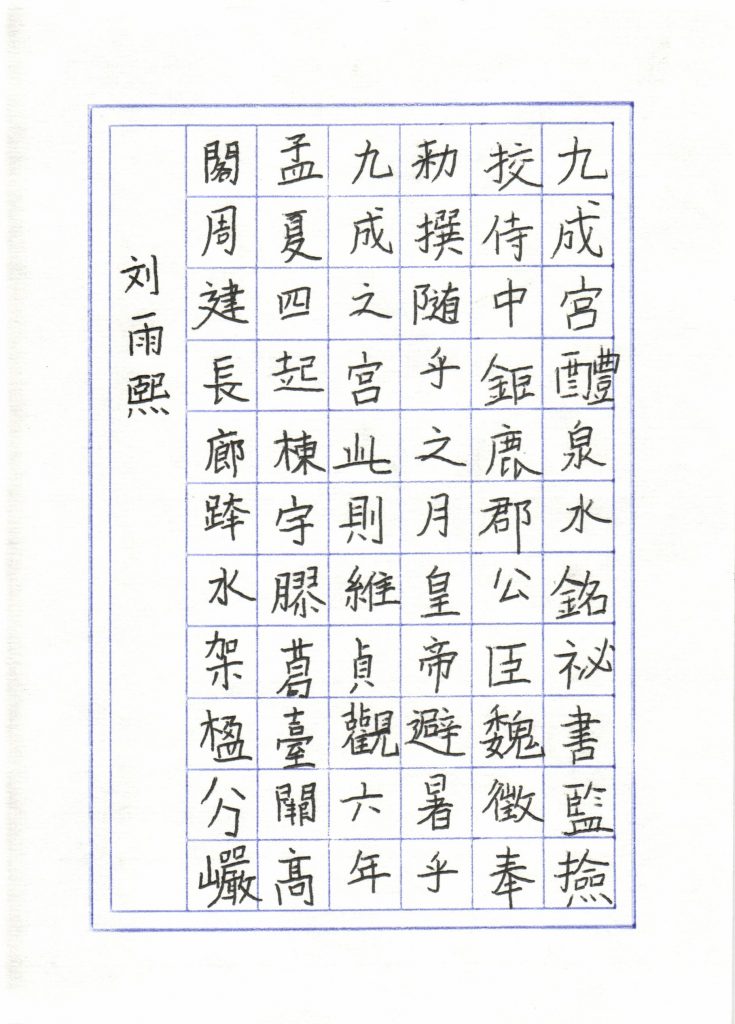 九成宮醴泉水銘祕書監撿
挍侍中鉅鹿郡公臣魏徵奉
勑撰随乎之月皇帝避暑乎
九成之宮此則維貞觀六年
孟夏四起棟宇膠葛臺關高
閣周建長廊跨水架楹分巖
刘雨熙